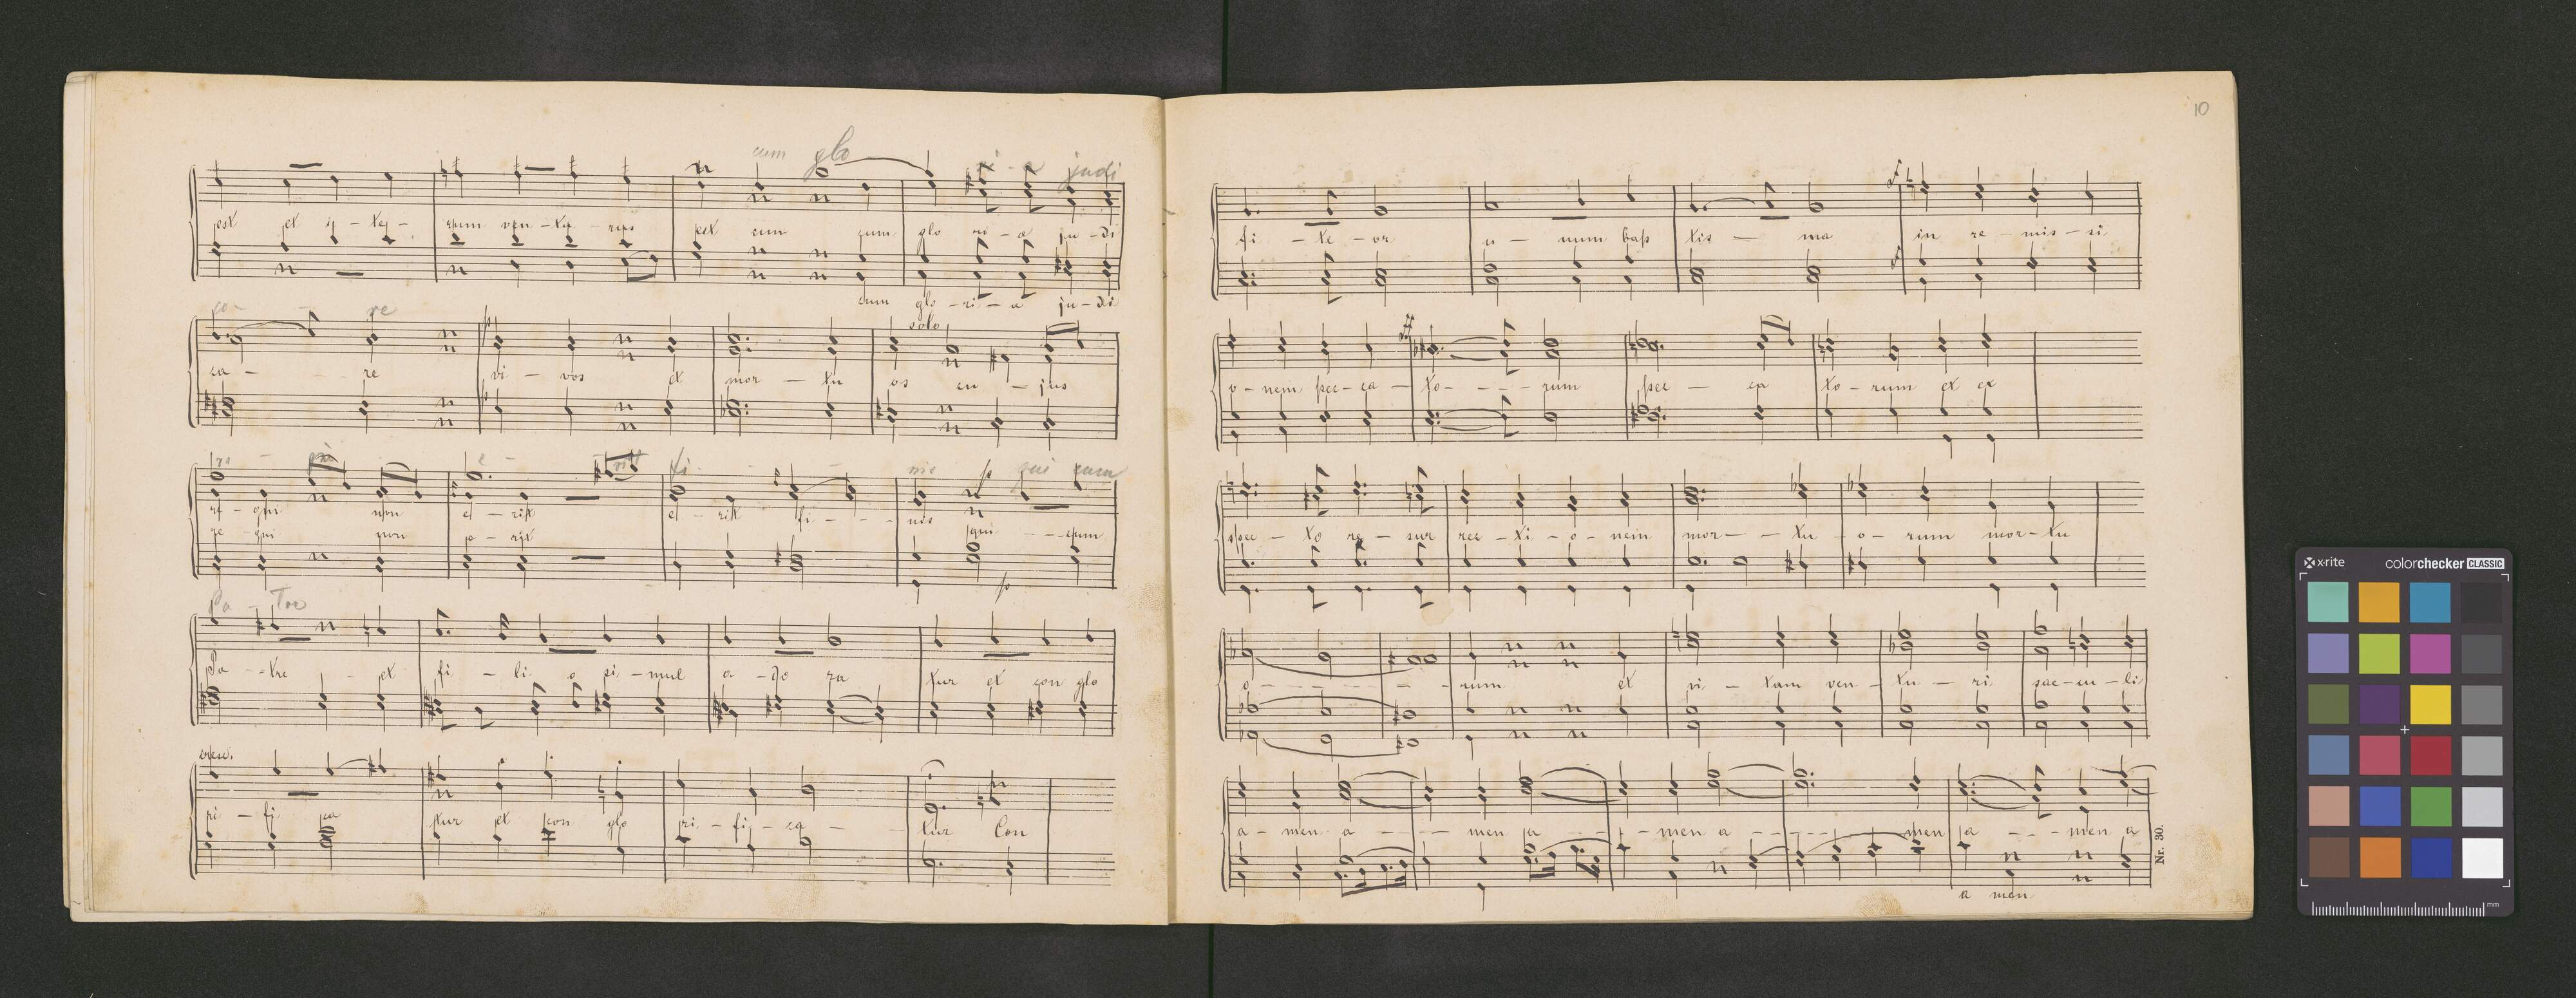 cum glo - ri - a judi
est et i - te - rum ven - tu - rus est cum cum glo ri - a ju - di
cum glo - ri - a ju - di
ca - re
solo
ca - re vi - vos et mor - tu os cu - jus
fi - nis qui cum
re - gni non e - rit e - rit fi - - - nis
re - gni non e - rit qui - - - cum
Pa - Tre
Pa - tre - et fi - li - o si - mul a - do ra tur et con glo
cresc.
ri - fi ca tur et con glo ri - fi - ca - tur Con
10
fi - te - or u - num bap tis - ma in re - mis - si
ff
o - nem pec - ca - to - - - - rum pec - ca to - rum et ex
spec - to re - sur rec - ti - o - nem mor - - tu - o - rum mor - tu
o - - - - - - - rum et vi - tam ven - tu - ri sae - cu - li
a - men a - - - - men a - - - - men a - - - - - men a - - - men a
a men
Nr. 30.
x-rite colorchecker CLASSIC
mm